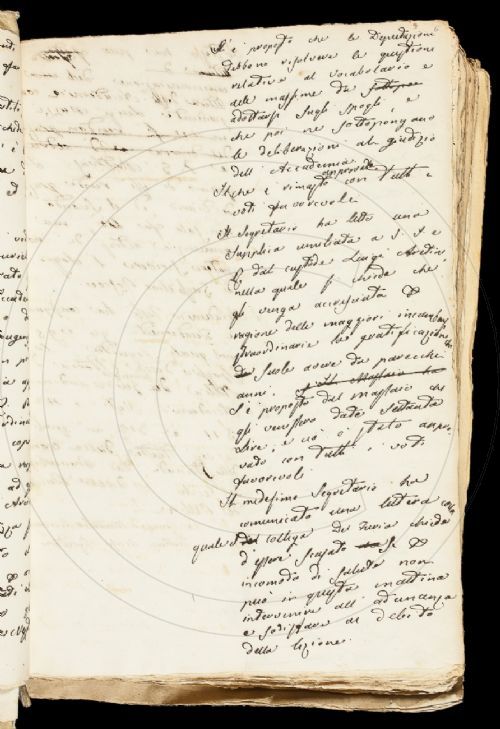 S'è proposto che le Deputazioni
debbano risolvere le questioni
relative al vocabolario e
alle massime da
adottarsi sugli Spogli, e
che poi ne sottopongano
le deliberazioni al giudizio
dell'Accademia
Il che è rimasto approvato con tutti i
voti favorevoli
Il Segretario ha letto una
supplica umiliata a S. S. e
dal custode Luigi
nella quale si chiede che
gli venga accresciuta
ragione delle maggiori incumbenze
straordinarie la gratificazione che
suole avere da parecchi
anni. il Massaio ha
S'è proposto dal Massaio che
gli venissero date settanta
Lire, e ciò è stato appro-
vato con tutti i voti
favorevoli
Il medesimo Segretario ha
comunicato una lettera colla
quale il collega Del Furia chiede
d'essere scusato se
incomodo di salute non
può in questa mattina
intervenire all'adunanza
e sodisfare al debito
della lezione.